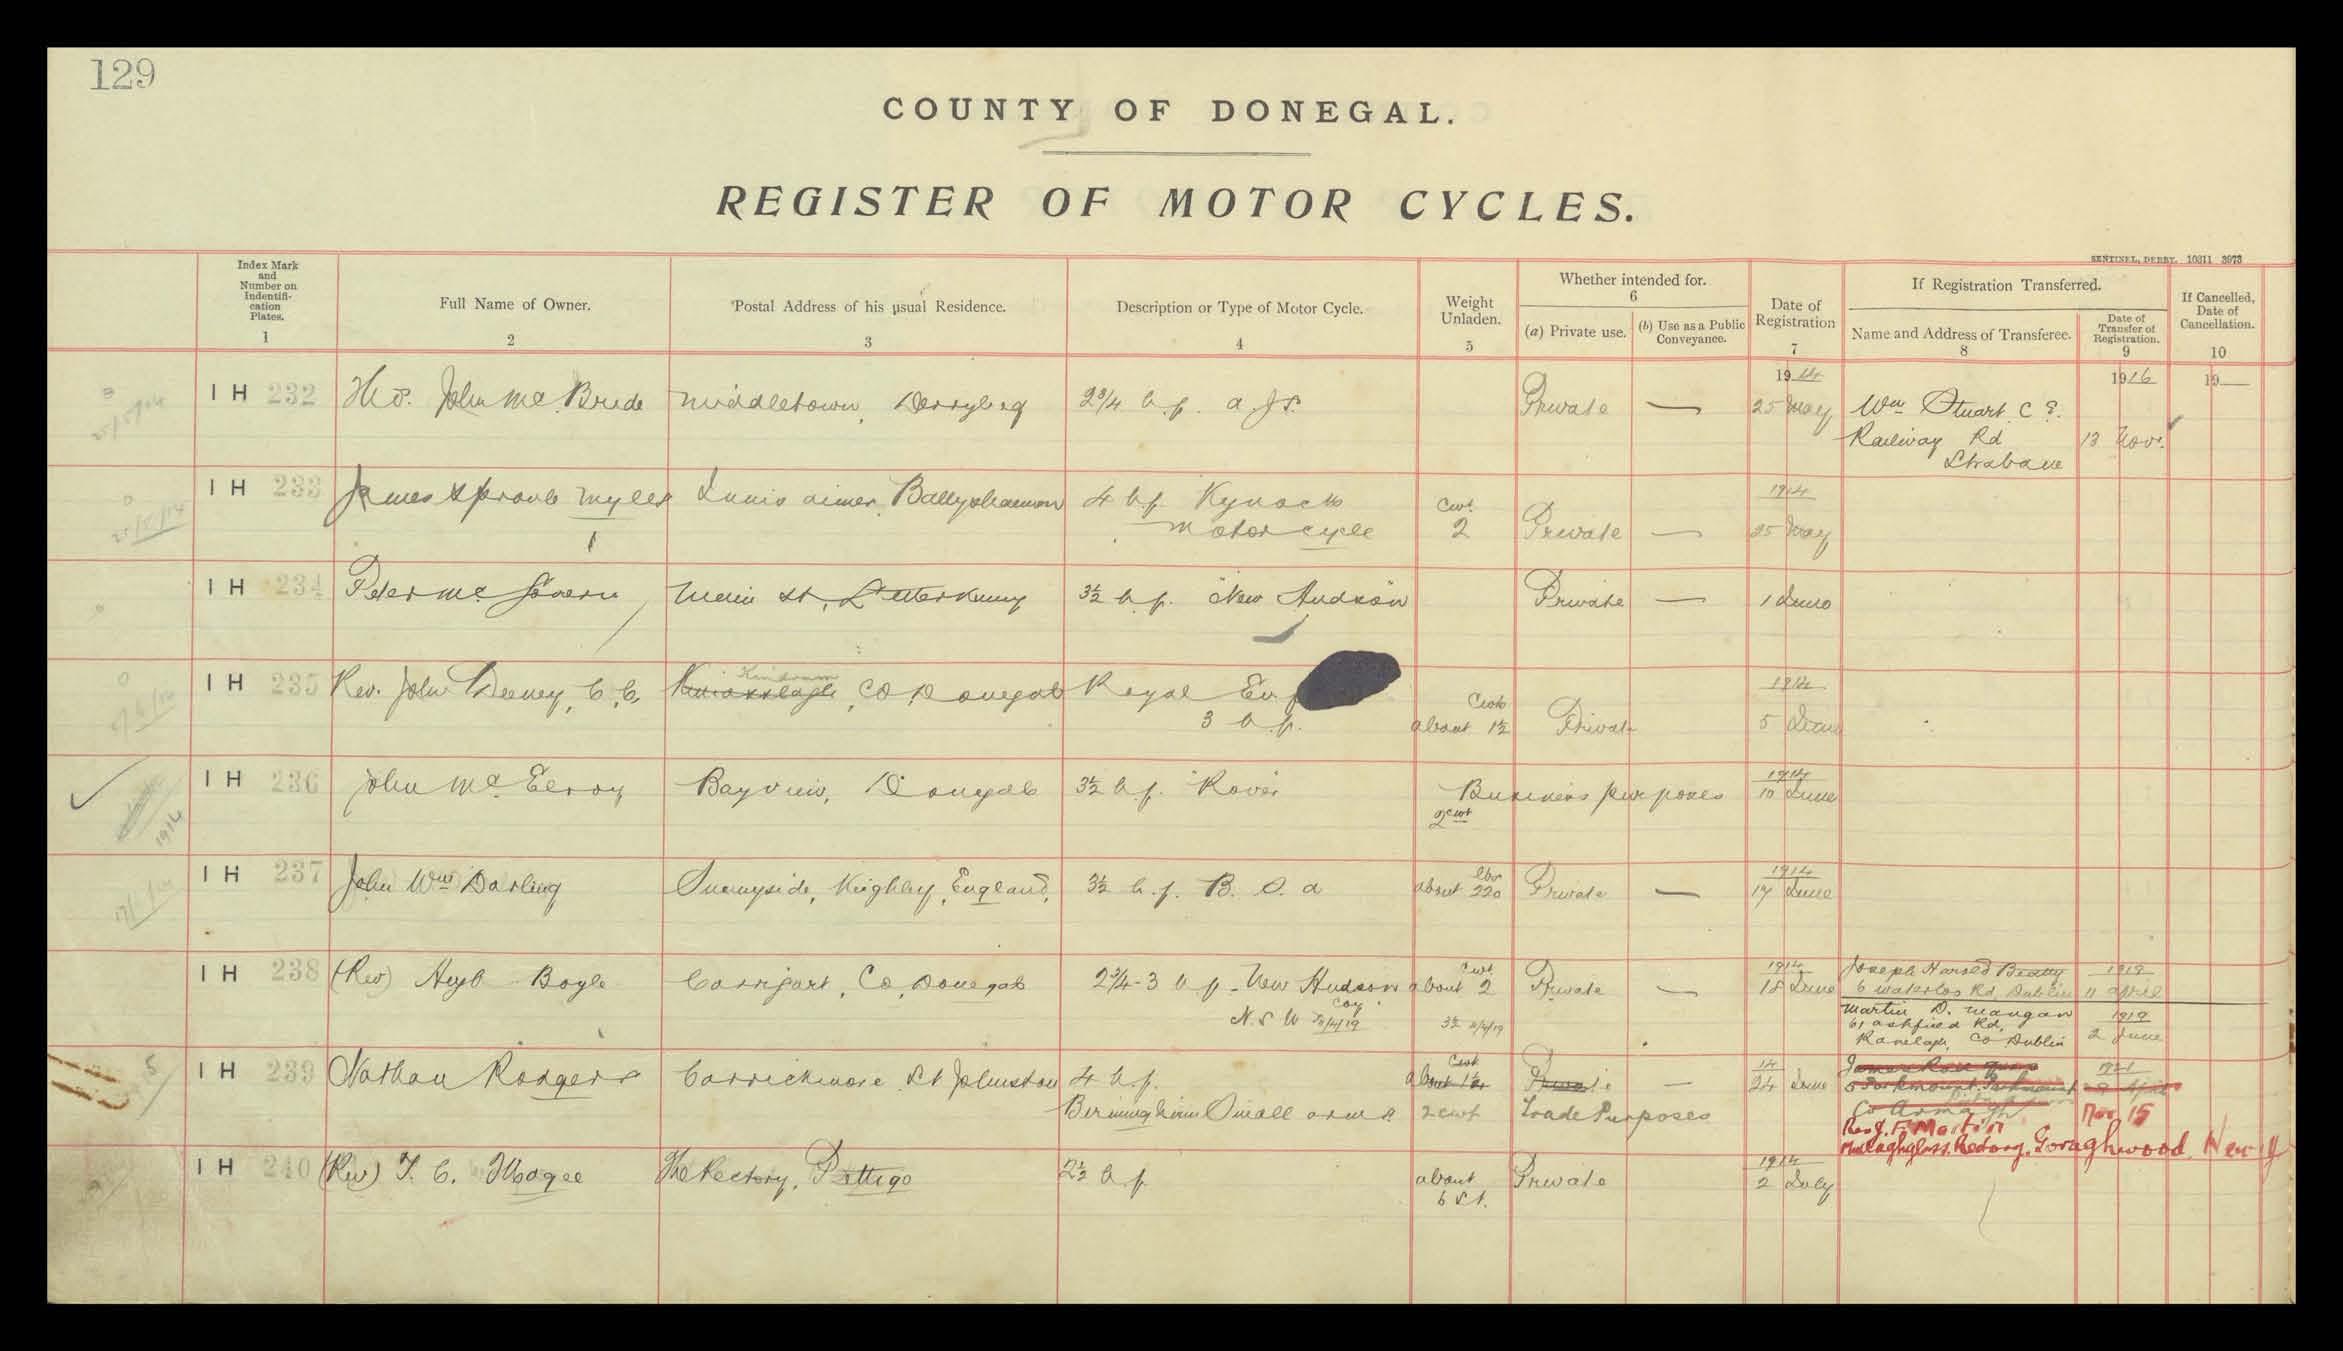 129
COUNTY OF DONEGAL.
REGISTER OF MOTOR CYCLES.
SENTINEL, DERRY. 10311 3973
Index Mark and Number on Indentifi-cation Plates.
1
Full Name of Owner.
2
Postal Address of his usual Residence.
3
Description or Type of Motor Cycle.
4
Weight Unladen.
5
Whether intended for.
6
(a) Private use.
(b) Use as a Public Conveyance.
Date of Registration
7
If Registration Transferred.
Name and Address of Transferee.
8
Date of Transfer of Registration.
9
If Cancelled, Date of Cancellation.
10
1914 1916 19
IH 232 John Mc Bride Middletown, Derrybeg 2 3/4 h.p. A J S. Private — 25 May Wm Stuart C E.
Railway Rd 13 Nov.
Strabane
IH 233 James Sproule Myles Ballyshannon 4 h.p. Kynoch Cwt. 1914
Motor cycle 2 Private — 25 May
IH 234 Peter Mc Govern Main St, Letterkenny 3½ h.p. "New Hudson" Private — 1 June
Kindrum
IH 235 Rev. John Deeney, C.C. Co Donegal Royal 1914
3 h.p. Cwt about 1½ Private 5 June
IH 236 John Mc Elroy Bayview, Donegal 3½ h.p. "Rover" Business purposes 1914 10 June
2 cwt
1914
IH 237 John Wm Darling Sunnyside, Keighley, England, 3½ h.p. B. S. A about lbs 220 Private — 1914 17 June
IH 238 (Rev) Hugh Boyle Carrigart, Co, Donegal 2 3/4-3 h p. New Hudson about Cwt 2 Private — 1914 18 June Joseph Harold Beatty 1919
6 Waterloo Rd, Dublin 11 April
Coy
N.S W 3½ 11/4/19
Martin D. Mangan 1919
61 Ashfield Rd, 2 June
Ranelagh, Co Dublin
IH 239 Nathan Rodgers Carrickmore St Johnston 4 h.p. Cwt about 1½ Private — 14 24 June 1921
Birmingham Small Arms 2 cwt Trade Purposes
Co Armagh Nov 15
Rev J. F. Martin
Mullaghglass Rectory, Goraghwood, Newry
IH 240 (Rev) T. C. Magee The Rectory, Pettigo 2½ h.p about 6 St. Private 1914 2 July